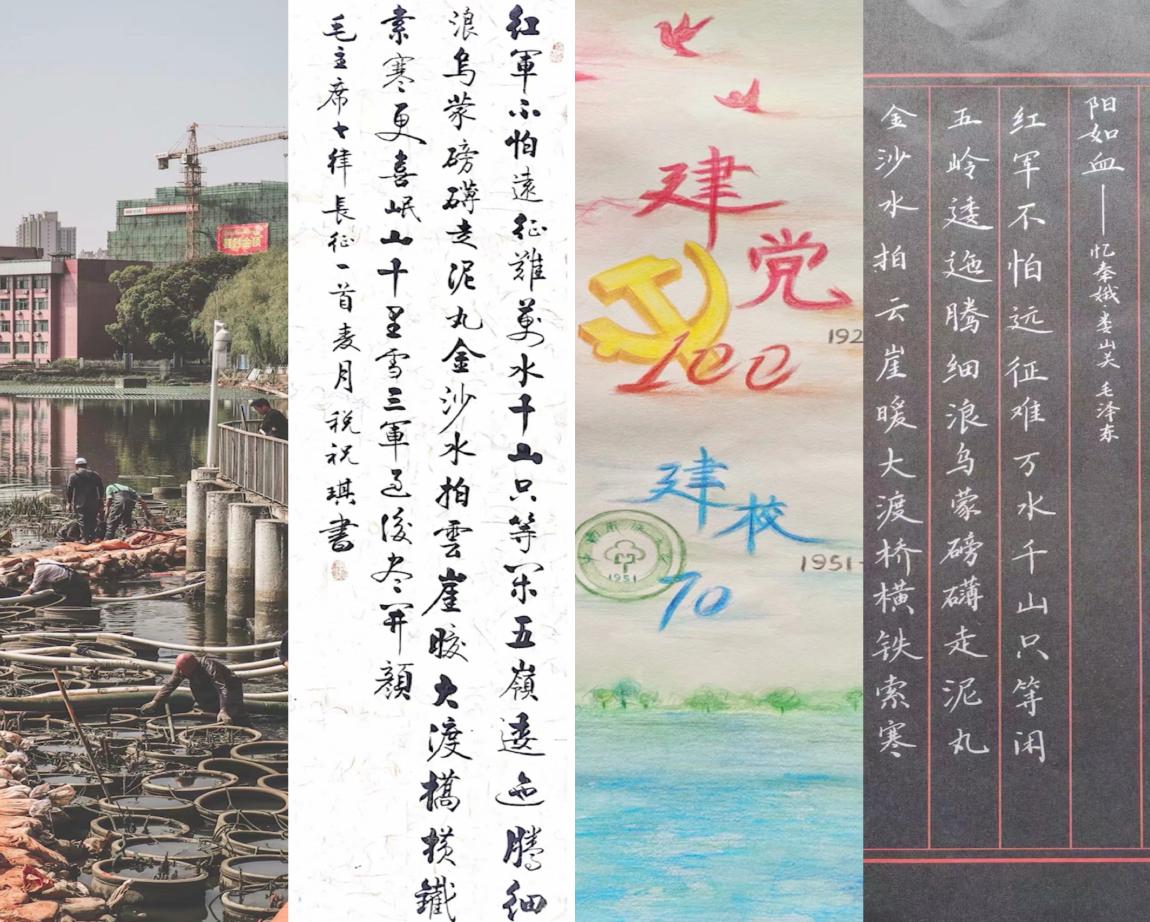 紅軍不怕遠征難萬水千山只等闲五嶺逶迤騰細
浪烏蒙磅礴走泥丸金沙水拍雲崖暖大渡橋横鐵
索寒更喜岷山千里雪三軍过後尽開顔
毛主席七律長征一首麦月 税祝琪書
建党
100
192
建校
70
1951-
1951
阳如血——忆秦娥娄山关 毛泽东
红军不怕远征难万水千山只等闲
五岭逶迤腾细浪乌蒙磅礴走泥丸
金沙水拍云崖暖大渡桥横铁索寒